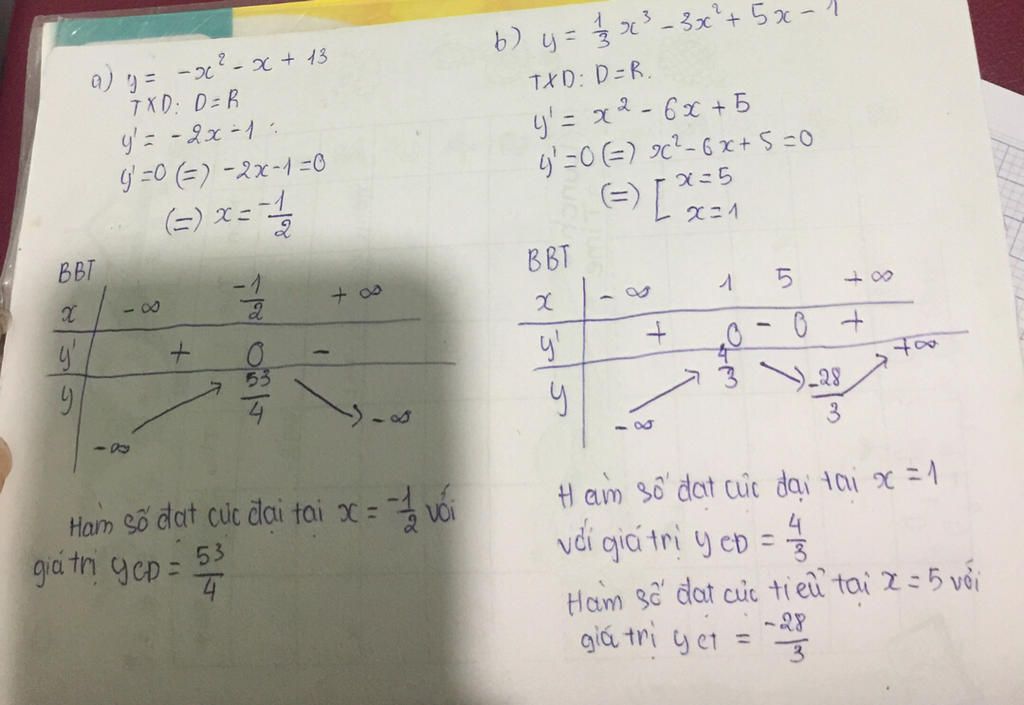 a) y = -x² - x + 13
TXD: D=R
y' = -2x-1
y'=0 (=) -2x-1=0
(=) x = -1/2
BBT
x -∞ -1/2 +∞
y' + 0 -
y -∞ 53/4 -∞
Hàm số đạt cực đại tại x = -1/2 với
giá trị yCD = 53/4
b) y = 1/3 x³ - 3x² + 5x - 1
TXD: D=R.
y' = x² - 6x + 5
y'=0 (=) x²-6x+5=0
(=) [ x=5
x=1
BBT
x -∞ 1 5 +∞
y' + 0 - 0 +
y -∞ 4/3 -28/3 +∞
Hàm số đạt cực đại tại x = 1
với giá trị yCD = 4/3
Hàm số đạt cực tiểu tại x = 5 với
giá trị yCT = -28/3